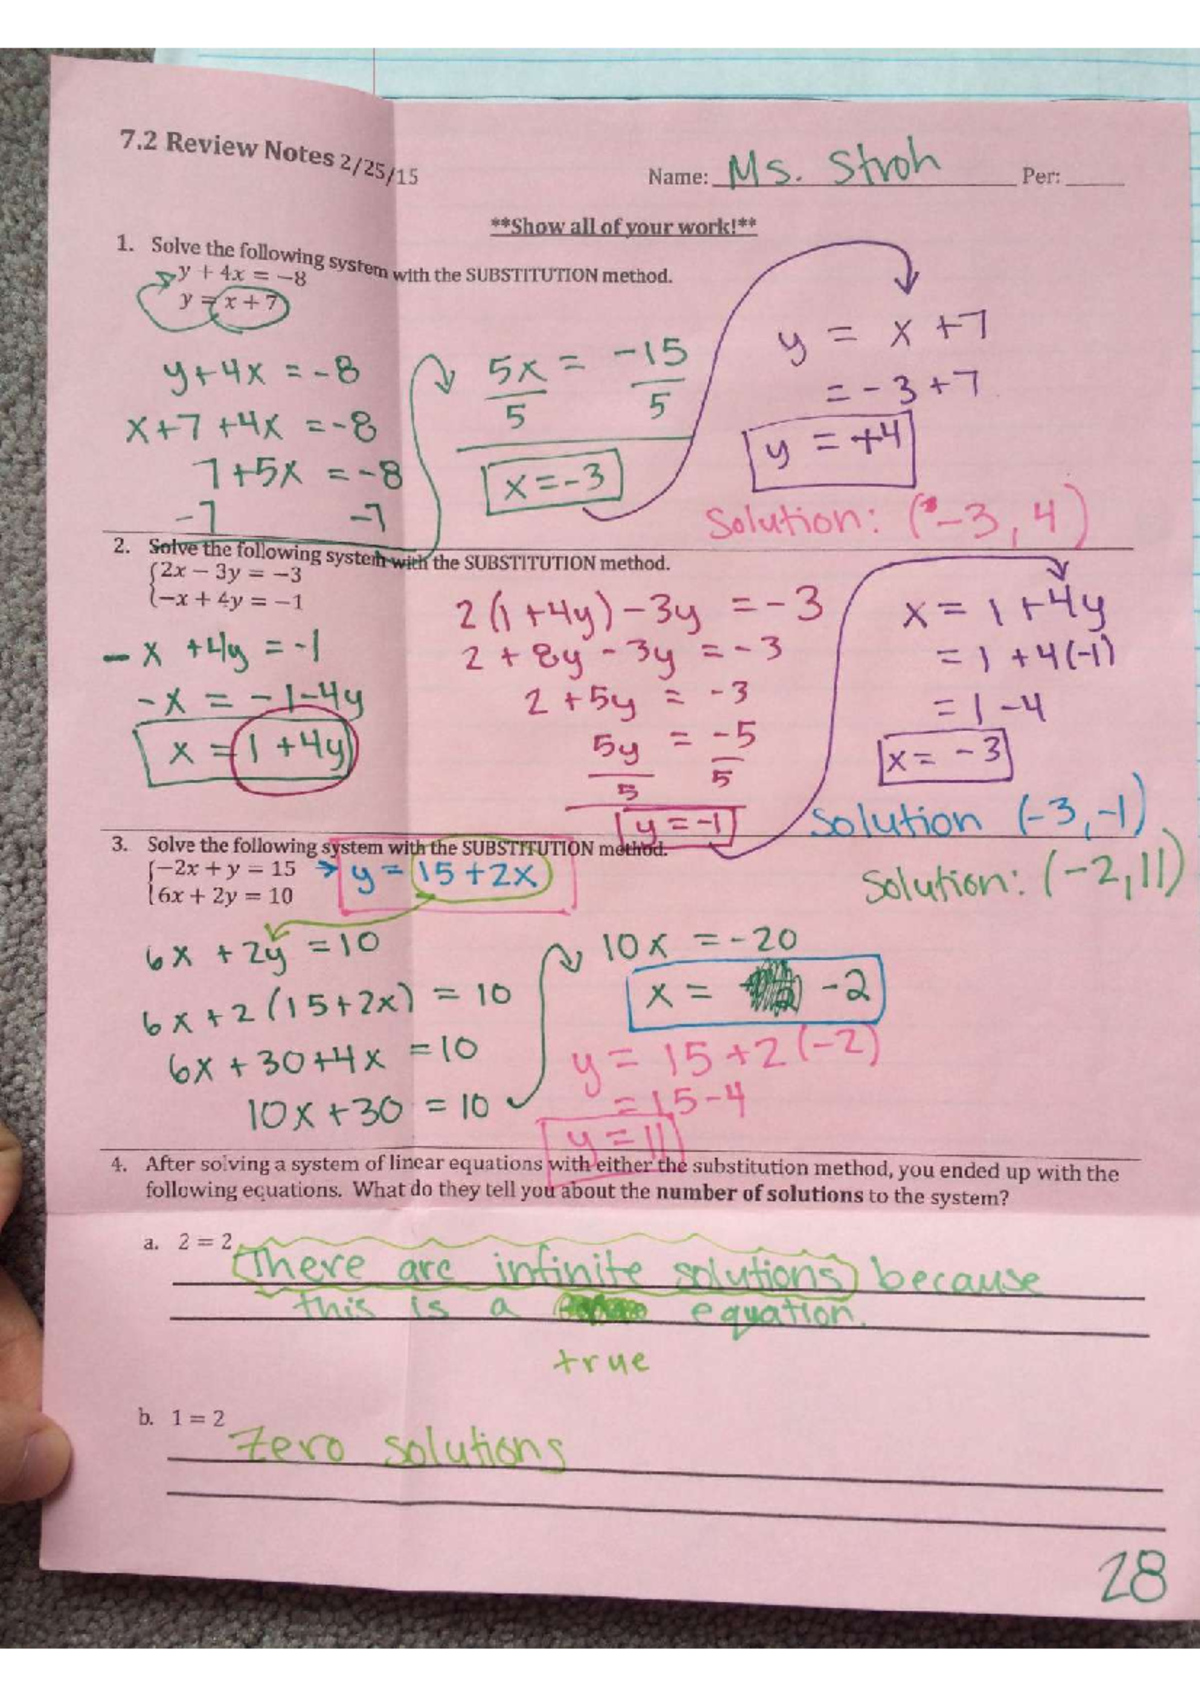 7.2 Review Notes 2/25/15
Name: Ms. Stroh Per:
**Show all of your work!**
1. Solve the following system with the SUBSTITUTION method.
y + 4x = −8
y = x + 7
y + 4x = -8
x+7 +4x = -8
7+5x = -8
-7 -7
5x = -15
5 5
x = -3
y = x +7
= -3 +7
y = +4
Solution: (-3, 4)
2. Solve the following system with the SUBSTITUTION method.
2x − 3y = −3
−x + 4y = −1
-x +4y = -1
-x = -1-4y
x = 1 +4y
2(1+4y) -3y = -3
2 + 8y - 3y = -3
2 +5y = -3
5y = -5
5 5
y = -1
x = 1 +4y
= 1 +4(-1)
= 1 -4
x = -3
Solution (-3, -1)
3. Solve the following system with the SUBSTITUTION method.
−2x + y = 15 → y = 15 +2x
6x + 2y = 10
Solution: (-2, 11)
6x + 2y = 10
6x +2(15+2x) = 10
6x + 30 +4x = 10
10x +30 = 10
10x = -20
x = -2
y = 15 +2(-2)
= 15 -4
y = 11
4. After solving a system of linear equations with either the substitution method, you ended up with the
following equations. What do they tell you about the number of solutions to the system?
a. 2 = 2
There are infinite solutions because
this is a equation.
true
b. 1 = 2
Zero solutions
28